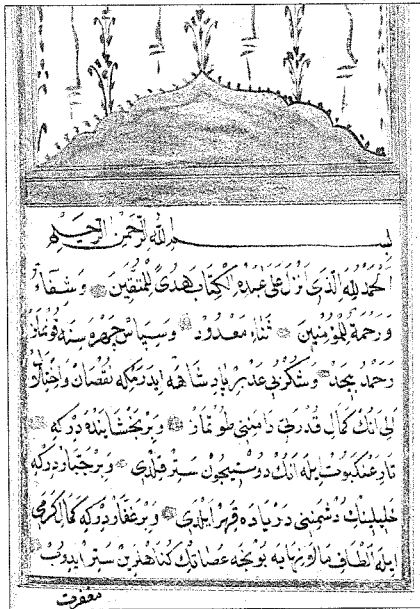 بسم الله الرحمن الرحيم
الحمد لله الذي انزل على عبده الكتاب هدى للمتقين وشفاء
ورحمة للمؤمنين ثناء معدود وسپاس چهره سنه قونماز
وحمد بيحد وشكر بي عد بر پادشاهه ايدرم كه نقصان واختلال
الى انك كمال قدرتى دامننى طوتماز وبر بخشاينده دركه
تار عنكبوت ايله انك دوستيچون ستر قلدى وبر جبار دركه
خليلينك دشمننى درياده قهر ايلدى وبر غفار دركه كمال كرمى
ايله الطاف مالا نهايه بونجه عصاتك كناهلرين ستر ايدوب
مغفرت